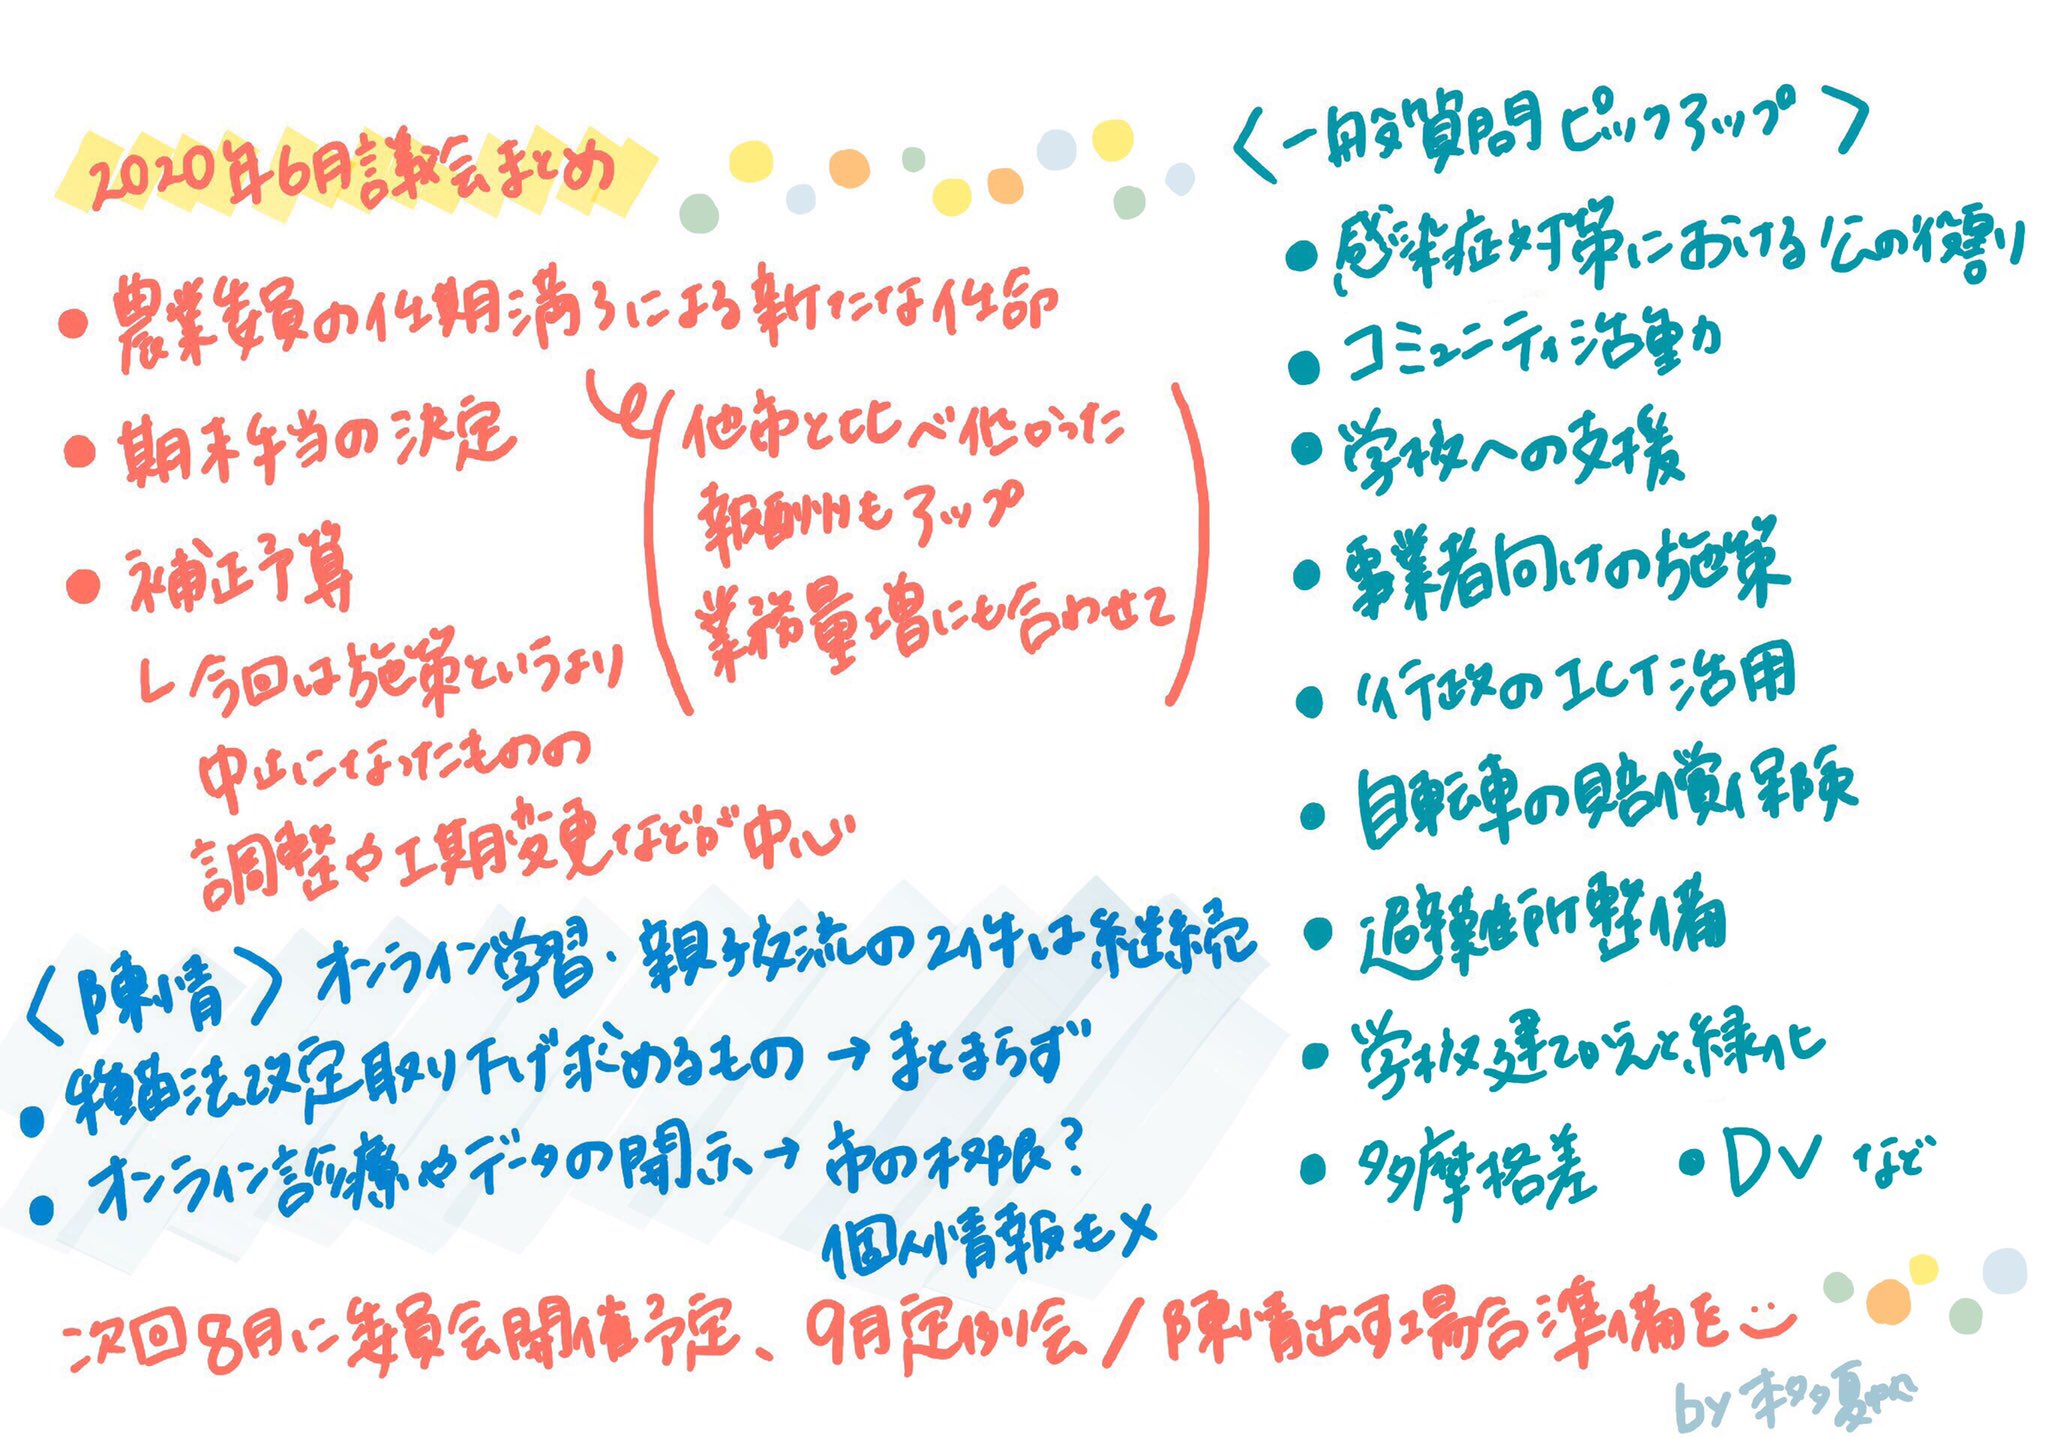 2020年6月議会まとめ
• 農業委員の任期満了による新たな任命
(他市と比べ低かった
報酬もアップ
業務量増にも合わせて)
• 期末手当の決定
• 補正予算
└ 今回は施策というより
中止になったものの
調整や工期変更などが中心
〈陳情〉オンライン学習・親子交流の2件は継続
• 種苗法改定取り下げ求めるもの→まとまらず
• オンライン診療やデータの開示→市の権限?
個人情報も×
次回8月に委員会開催予定、9月定例会/陳情出す場合準備を
〈一般質問ピックアップ〉
• 感染症対策における公の役割
• コミュニティ活動
• 学校への支援
• 事業者向けの施策
• 行政のICT活用
• 自転車の賠償保険
• 避難所整備
• 学校建てかえと緑化
• 多摩格差 • DV など
by 本多夏帆